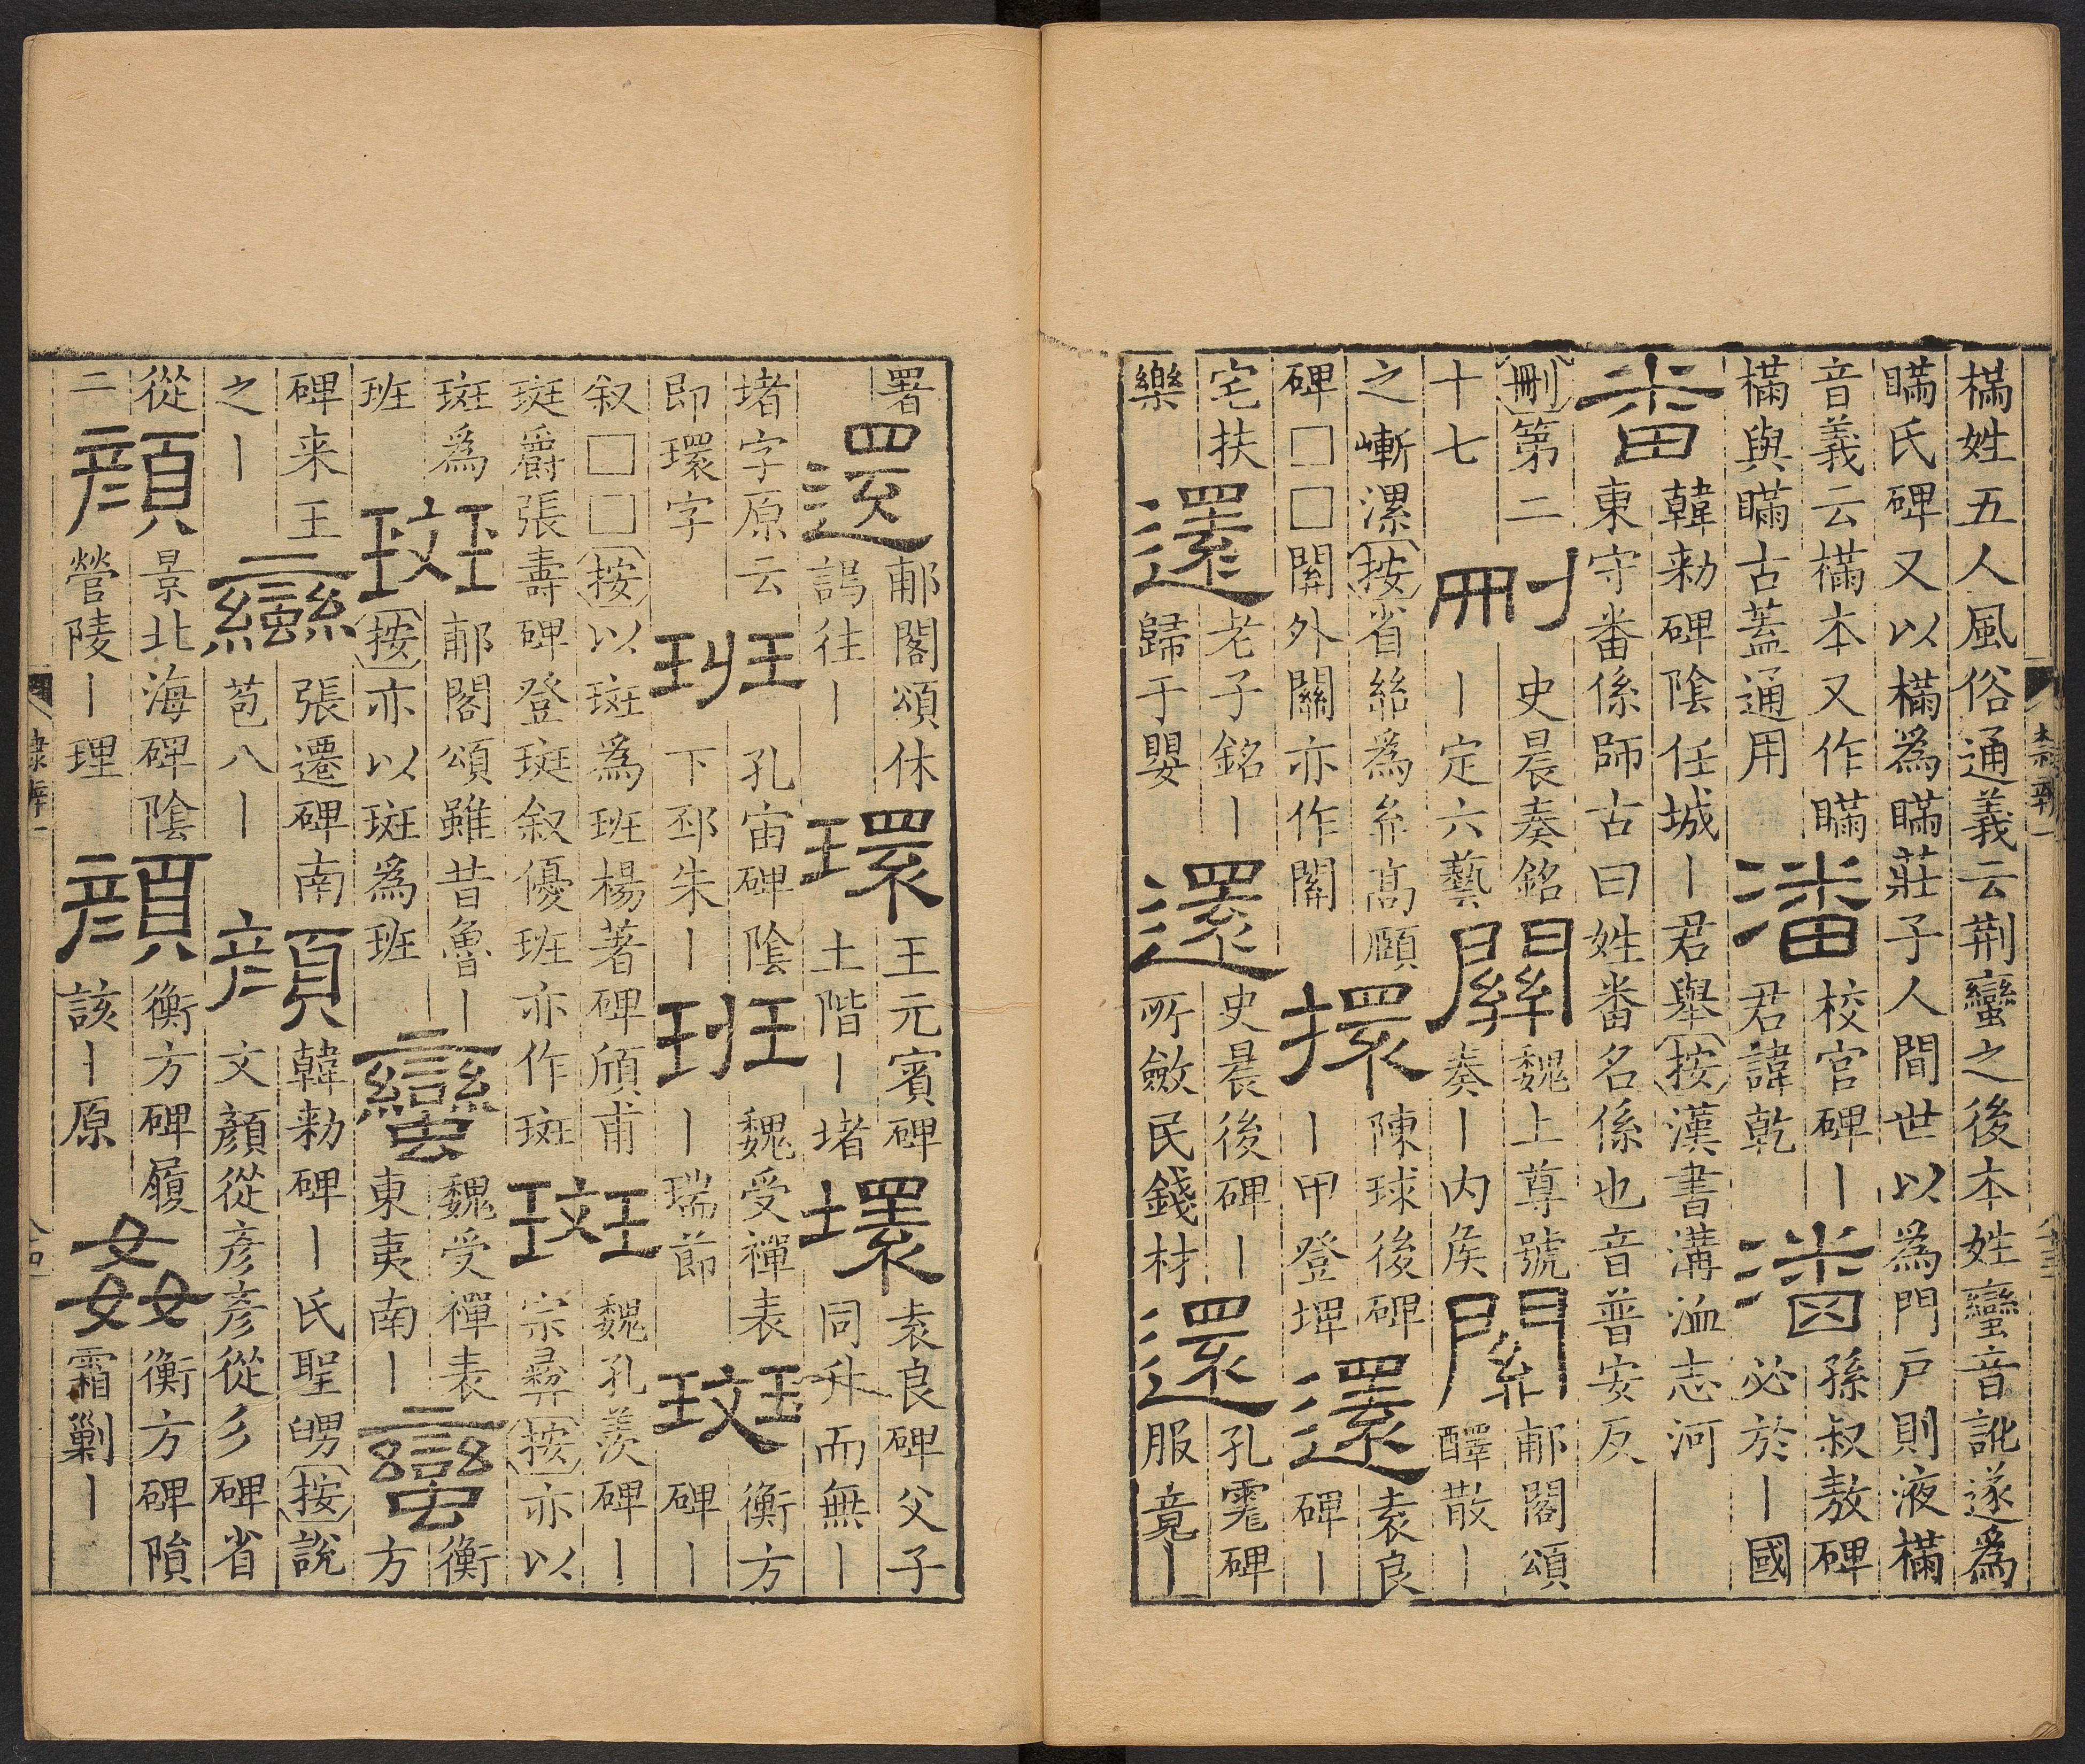 樠姓五人風俗通義云荆蠻之後本姓蠻音訛遂為
瞞氏碑又以樠為瞞莊子人間世以為門戶則液樠
音義云樠本又作瞞
樠與瞞古蓋通用
潘
校官碑丨
君諱乾
潘
孫叔敖碑
必於丨國
番
韓勑碑陰任城丨君舉按漢書溝洫志河
東守番係師古曰姓番名係也音普安反
刪第二
十七
刪
史晨奏銘
丨定六藝
關
魏上尊號
奏丨内矦
關
郙閣頌
醳散丨
之嶃漯按省絲為高願
碑□□關外關亦作關
擐
陳球後碑
丨甲登埤
還
袁良
碑丨
宅扶
樂
還
老子銘丨
歸于嬰
還
史晨後碑丨
所斂民錢材
還
孔碑
服竟丨
隸辨一
署
還
郙閣頌休
謁往丨
環
王元賓碑
土階丨堵
環
袁良碑父子
同升而無丨
堵字原云
即環字
班
孔宙碑陰
下邳朱丨
班
魏受禪表
丨瑞節
斑
衡方
碑丨
叙□□按以斑為班楊著碑頎甫
斑爵張壽碑登斑叙優班亦作斑
斑
魏孔羨碑丨
宗彝按亦以
斑為
班
斑
郙閣頌雖昔魯丨
按亦以斑為班
蠻
魏受禪表
東夷南丨
蠻
衡
方
碑来王
之丨
蠻
張遷碑南
苞八丨
顏
韓勑碑丨氏聖舅按說
文顏從彥彥從彡碑省
從
二
顏
景北海碑陰
營陵丨理
顏
衡方碑履
該丨原
姦
衡方碑隕
霜剿丨
隸辨一